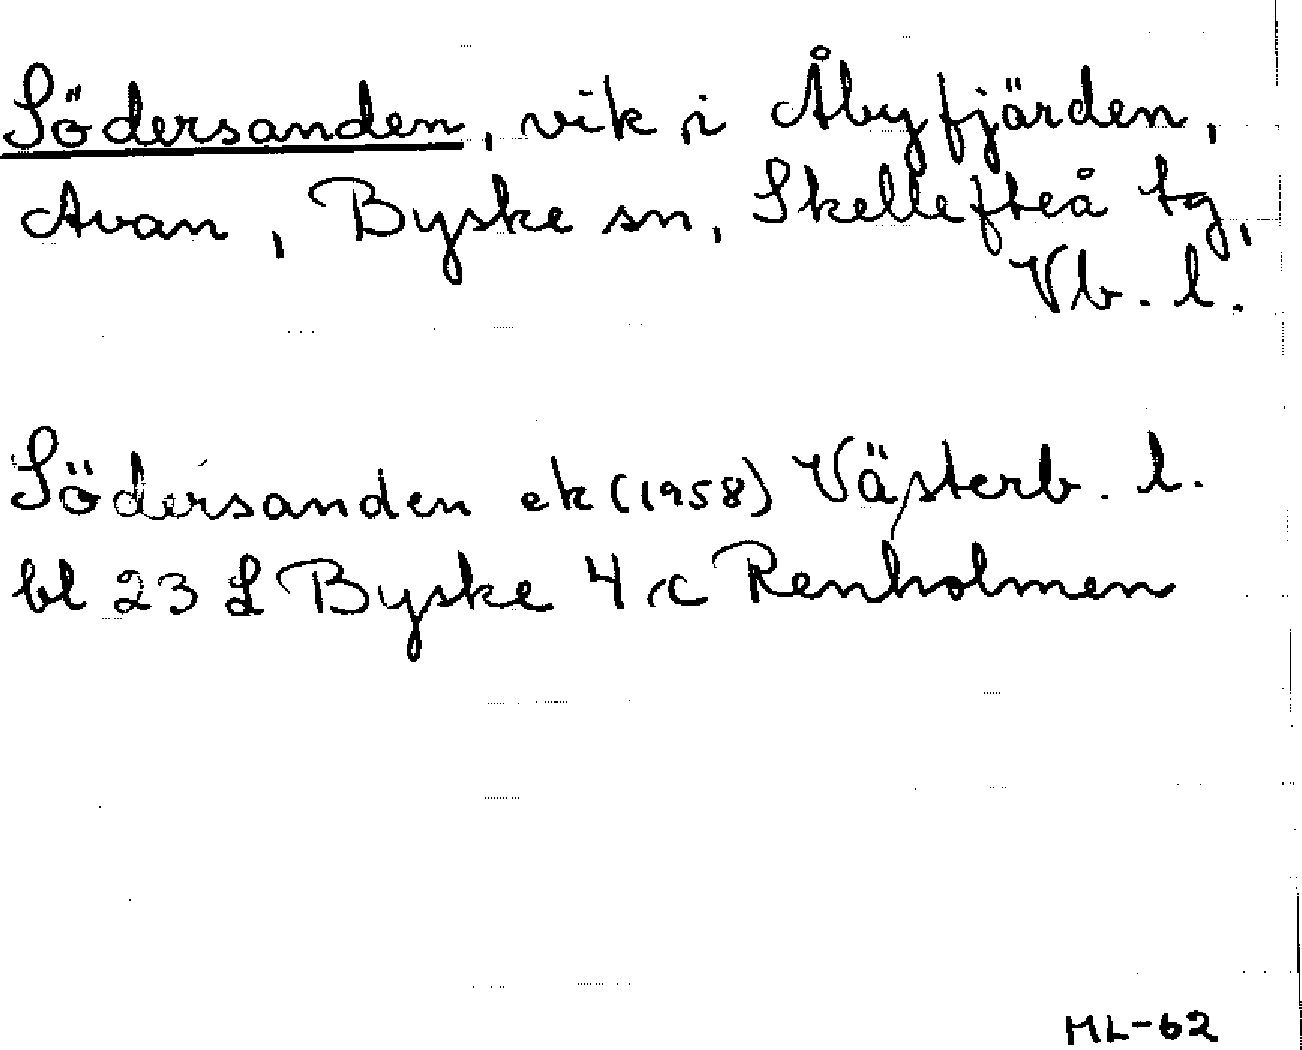 Södersanden, vik i Åbyfjärden,
Avan, Byske sn, Skellefteå tg,
Vb. l.
Södersanden ek (1958) Västerb. l.
bl 23 L Byske 4 c Renholmen
ML-62